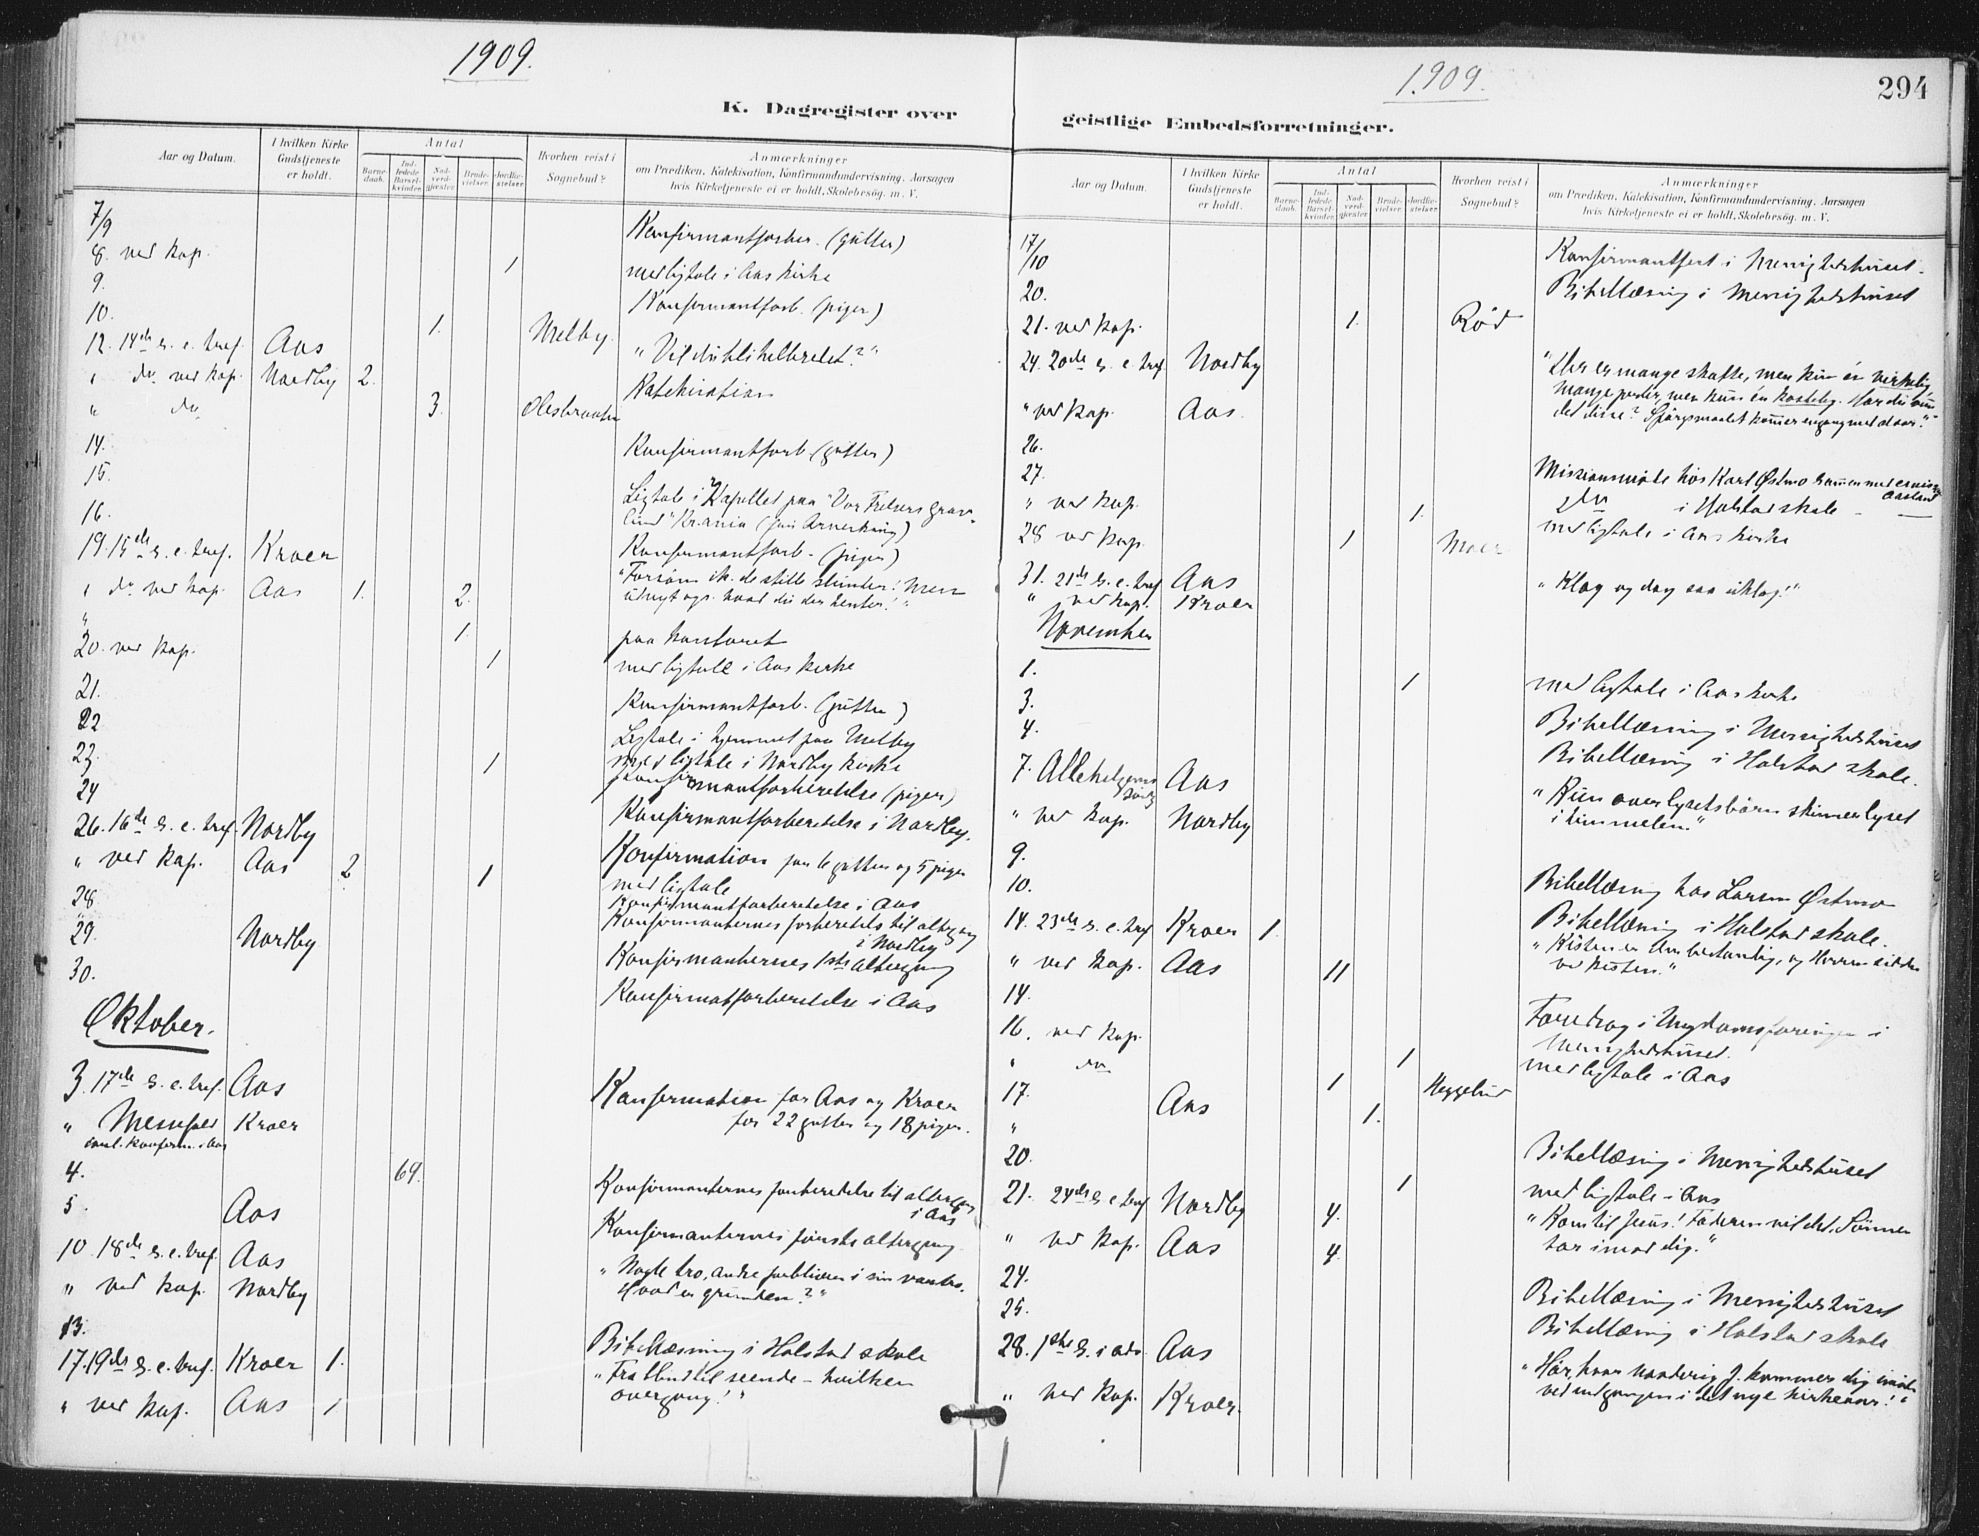 1909.
K. Dagregister over
Aar og Datum.
I hvilken Kirke Gudstjeneste er holdt.
Antal
Barnedaab.
Indledede Barselkvinder.
Nadverdgjæster
Brudevielser.
Jordfæstelser
Hvorhen reist i Sognebud?
Anmærkninger
om Prædiken, Katekisation, Konfirmandundervisning, Aarsagen
hvis Kirketjeneste ei er holdt, Skolebesøg. m. V.
7/9 Konfirmantforber. (gutter)
8. ved kap. 1 med ligtale i Aas kirke
9. Konfirmantforb. (piger)
10. 1. Melby
12. 14de s. e. tref. Aas "Vil du bli helbredet?"
" do ved kap. Nordby 2. Katekisation
" do 3.
14. Konfirmantforb. (gutter)
15. Ligtale i Kapellet paa "Vor Frelsers grav-
lund" Kr.ania
16. Konfirmantforb. (piger)
19. 15de s. e. tref. Kroer "Forsøm ik. de stille stunder! Men
" do ved kap. Aas 1. 2.
" 1. paa kontoret
20. ved kap. 1 med ligtale i Aas kirke
21. Konfirmantforb. (gutter)
22 Ligtale i hjemmet paa Melby
23. 1 med ligtale i Nordby kirke
24 Konfirmantforberedelse (piger)
Konfirmantforberedelse i Nordby.
26. 16de s. e. tref. Nordby Konfirmation for 6 gutter og 5 piger
" ved kap. Aas 2 1 med ligtale
28. Konfirmantforberedelse i Aas
29. Nordby Konfirmanternes forberedels til altergang
i Nordby
30. Konfirmanternes 1ste altergang
Konfirmatforberedelse i Aas
Oktober.
3. 17de s. e. tref. Aas Konfirmation for Aas og Kroer
" Messefald Kroer for 22 gutter og 18 piger.
saml. konform. i Aas
4. 69. Konfirmanternes forberedelse til altergang
i Aas
5. Aas Konfirmanternes første altergang
10. 18de s. e. tref. Aas "Nogle tro, andre forbliver i sin vantro.
" ved kap. Nordby Hvad er grunden?"
13. Bibellæsning i Holstad skole
17. 19de s. e. tref. Kroer 1. "Fra blind til seende – hvilken
" ved kap. Aas 1 overgang!"
1909.
294
geistlige Embedsforretninger.
Aar og Datum.
I hvilken Kirke Gudstjeneste er holdt.
Antal
Barnedaab.
Indledede Barselkvinder.
Nadverdgjæster
Brudevielser.
Jordfæstelser
Hvorhen reist i Sognebud?
Anmærkninger
om Prædiken, Katekisation, Konfirmandundervisning, Aarsagen
hvis Kirketjeneste ei er holdt, Skolebesøg. m. V.
17/10 Konfirmantfest i Menighedshuset.
20. Bibellæsning i Menighedshuset
21. ved kap. 1. Rød
24. 20de s. e. tref. Nordby "Der er mange skatte, men kun én virkelig,
mange perler, men kun én kostelig. Har du fun-
" ved kap. Aas. det disse? Spørgsmaalet kommer engang med staar."
26.
27. Missionsmøde hos Karl Østmo sammen med
" ved kap. 1. do i Holstad skole
28 ved kap. 1 Moer med ligtale i Aas kirke
31. 21de s. e. tref Aas "Klag og dog saa uklag!"
" ved kap. Kroer
November
1. 1 med ligtale i Aas kirke
3. Bibellæsning i Menighedshuset
4. Bibellæsning i Holstad skole.
7. Allehelgens Aas "Kun over lysets børn skinner lyset
" ved kap. Nordby i himmelen."
9. Bibellæsning hos Larsen Østmo
10. Bibellæsning i Holstad skole.
14. 23de s. e. tref Kroer 1. "Kisten er ubestandig, og Herren sidder
" ved kap. Aas 11 ved kisten."
14. Foredrag i Ungdomsforeningen i
Menighedshuset.
16. ved kap. 1 med ligtale i Aas
" do 1 Heggelund
17. Aas 1.
"
20. Bibellæsning i Menighedshuset
21. 24de s. e. tref Nordby 4. med ligtale i Aas
" ved kap. Aas 4. "Kom til Jesus! Faderen vil det. Sønnen
tar imod dig."
24. Bibellæsning i Menighedshuset
25. Bibellæsning i Holstad skole
28. 1ste s. i adv. Aas "Hør, hvor underlig J. kommer dig imøde
" ved kap. Kroer. ved indgangen i det nye kirkeaar!"